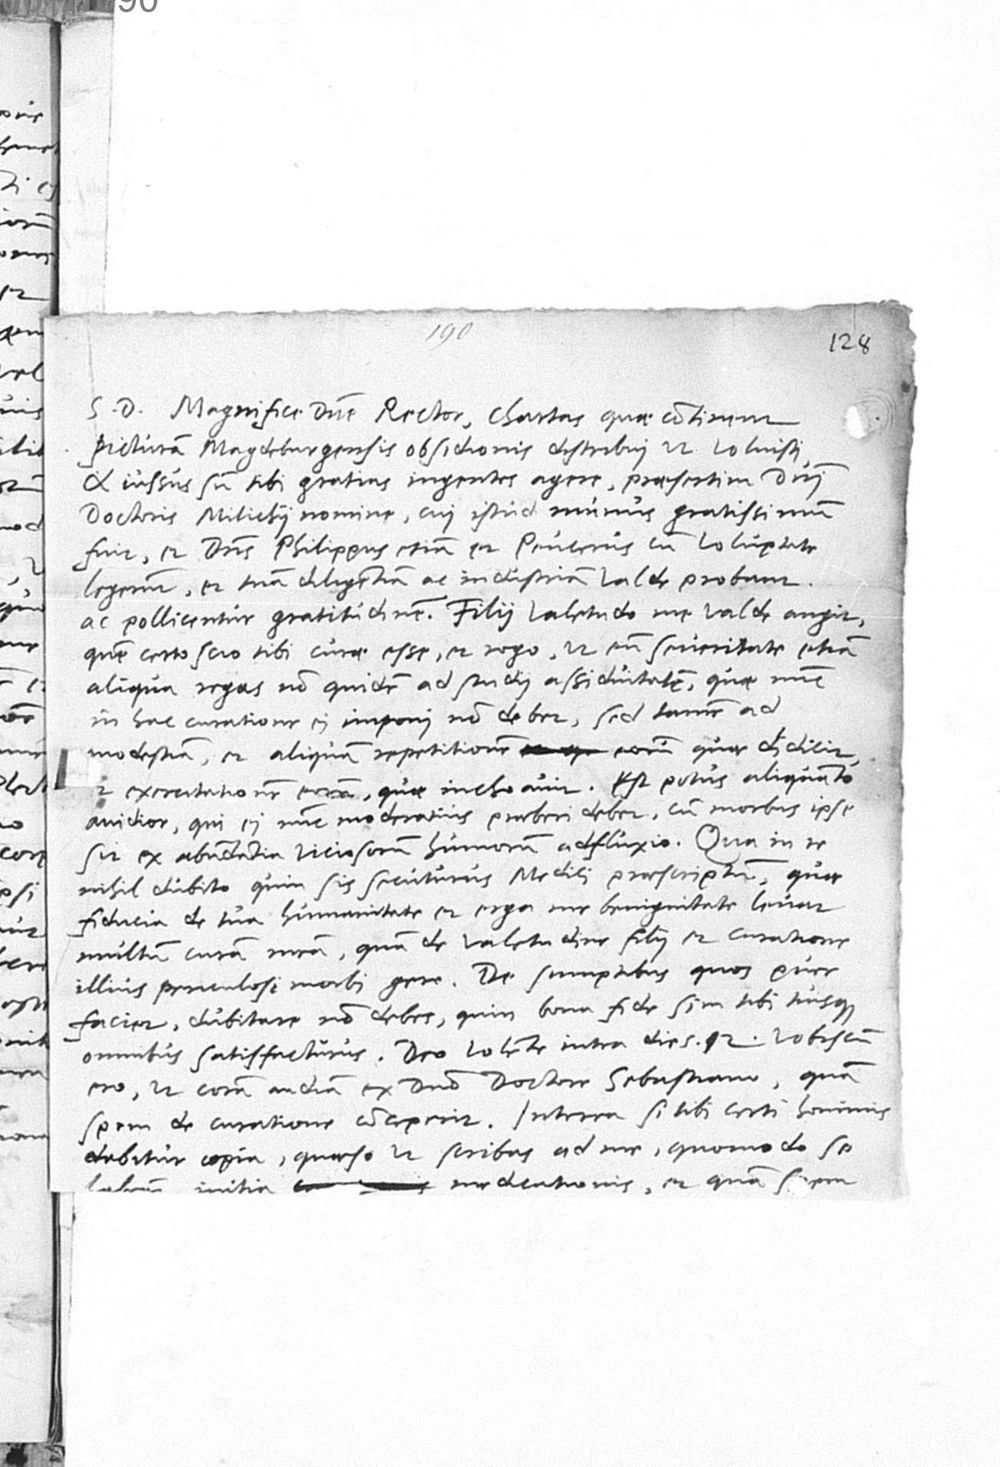 90
190
128
S. D. Magnifice Dne Rector, chartas quæ cõtinent
picturã Magdeburgensis obsidionis distribuj ut voluisti,
& iussus sũ tibi gratias ingentes agere, præsertim Dnj
Doctoris Milichij nomine, cuj istud munus gratissimũ
fuit, et Dns Philippus etiã et Peucerus cũ voluptate
legerũt, et tuã diligẽtiã ac industriã valde probant.
ac pollicentur gratitudinẽ. Filij valetudo me valde angit,
quẽ certo scio tibi curæ esse, et rogo, ut eũ severitate etiã
aliqua regas nõ quidẽ ad studij assiduitatẽ, quæ nũc
in hac curatione ej imponj nõ debet, sed tamẽ ad
modestiã, et aliquã repetitionẽ eorũ quæ didicit,
et exercitationẽ eorũ, quæ inchoavit. Est potus aliquãto
avidior, qui ej nũc moderatius præberi debet, cũ morbus ipse
sit ex abũdãtia viciosorũ humorũ adfluxio. Qua in re
nihil dubito quin sis secuturus Medicj præscriptũ, quæ
fiducia de tua humanitate et erga me benignitate levat
multũ curã meã, quã de valetudine filij et curatione
illius periculosi morbi gero. De sumptibus quos puer
faciet, dubitare nõ debes, quin bona fide sim tibi tuisq
omnibus satisfacturus. Deo volẽte intra dies. 12. vobiscũ
ero, ut corã audiã ex Dno Doctore Sebastiano, quã
spem de curatione cõceperit. Interea si tibi certi hominis
dabitur copia, quæso ut scribas ad me, quomodo se
habeãt initia medicationis, et quã spem